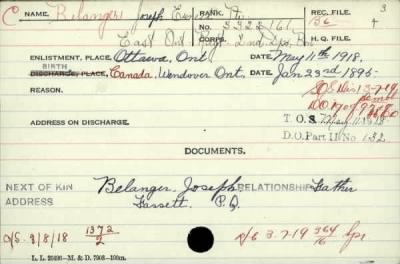 C NAME. Belanger, Joseph RANK. Pte. REC. FILE. 3
No. 3322161
East Ont Regt. 2nd Dps. Bn CORPS. H.Q. FILE.
ENLISTMENT, PLACE, Ottawa, Ont DATE May 11th 1918.
BIRTH
DISCHARGE, PLACE, Canada, Wendover Ont. DATE Jan 23rd 1895-
REASON.
T. O. S. May 11-1918
ADDRESS ON DISCHARGE. D.O. Part II No 132
DOCUMENTS.
NEXT OF KIN Belanger, Joseph RELATIONSHIP Father
ADDRESS Fassett. P.Q.
O/S. 2/8/18 1372/2 S/S 3-7-19 364/16
L. L. 20496—M. & D. 7908—100m.